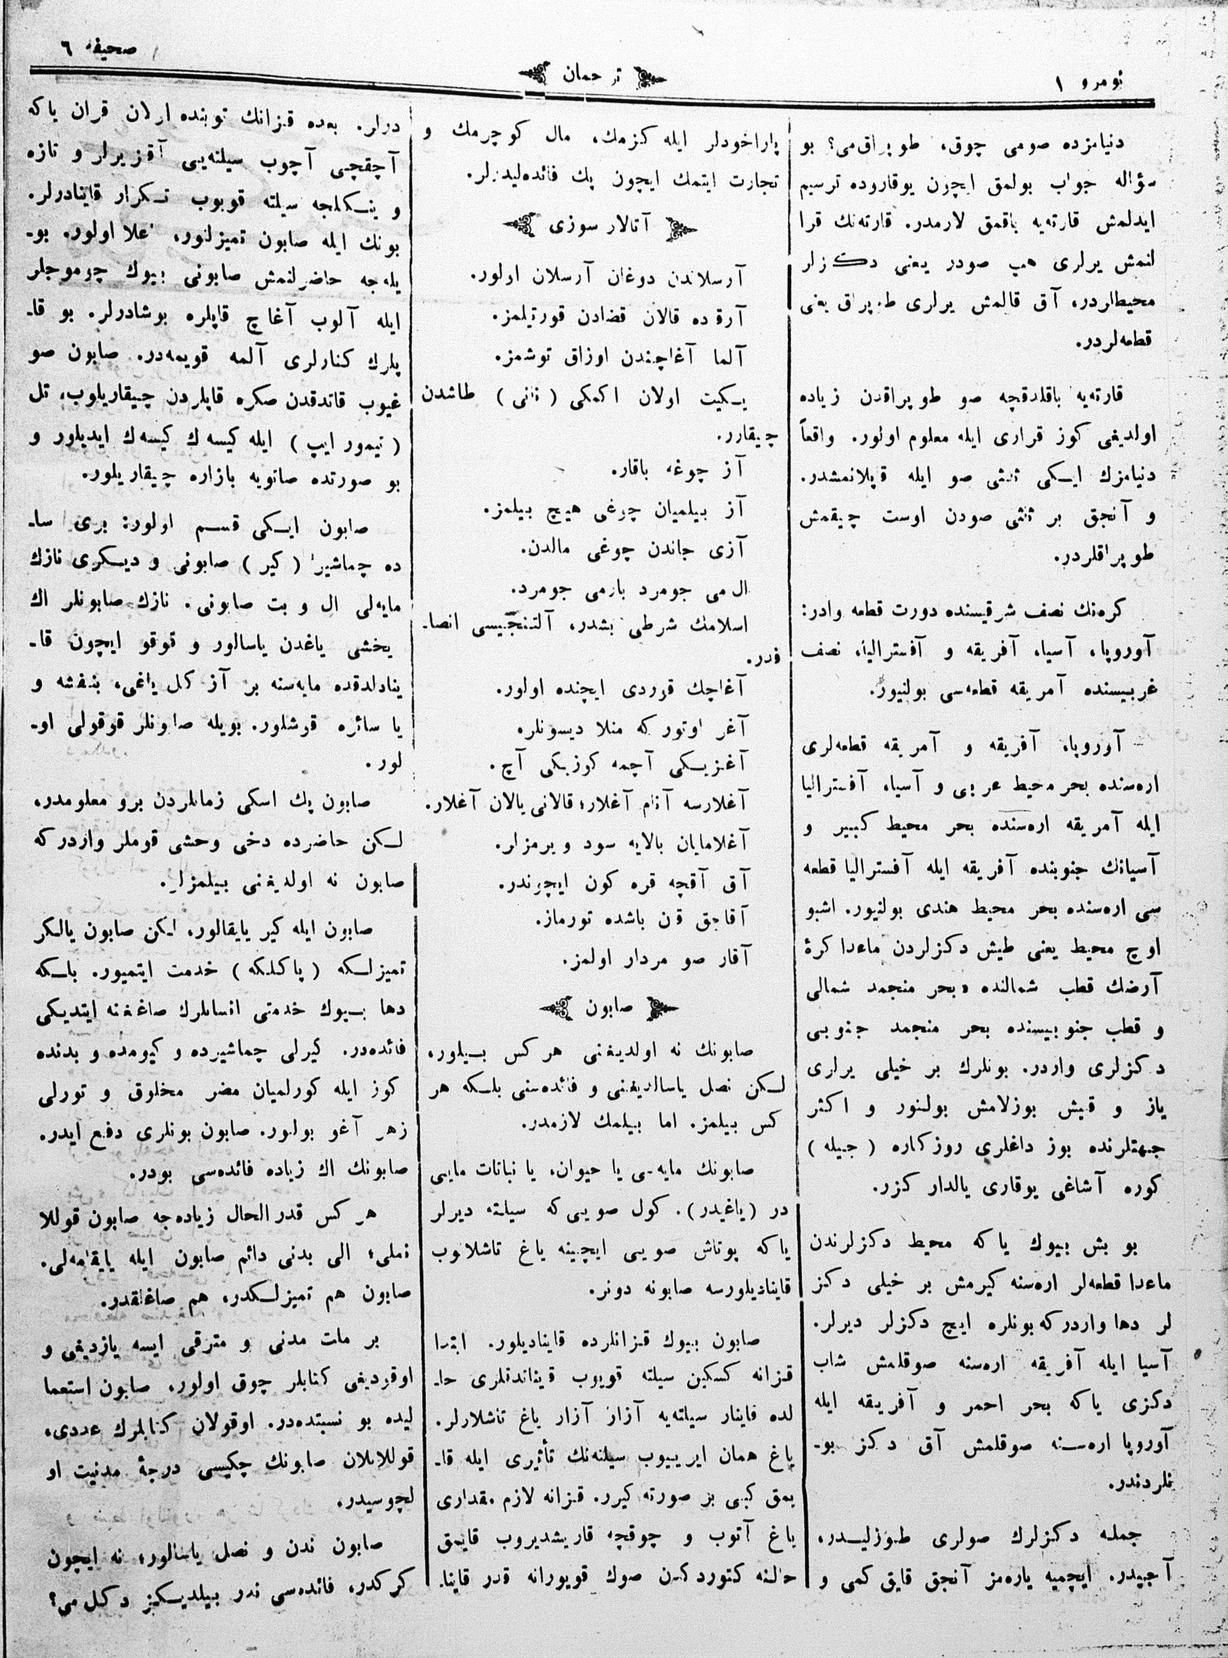 نومرو ١
ترجمان
صحیفه ٦
دنیامزده صومی چوق، طوپراق‌می؟ بو
سؤاله جواب بولمق ایچون یوقاروده ترسیم
ایدلمش قارته‌یه باقمق لازمدر. قارته‌نك قرا
لنمش یرلری هپ صودر یعنی دڭزلر
محیطلردر، آق قالمش یرلری طوپراق یعنی
قطعه‌لردر.
قارته‌یه باقلدقچه صو طوپراقدن زیاده
اولدیغی كوز قراری ایله معلوم اولور. واقعاً
دنیامزك ایكی ثلثی صو ایله قپلانمشدر.
و آنجق بر ثلثی صودن اوست چیقمش
طوپراقلردر.
كره‌نك نصف شرقیسنده دورت قطعه واردر:
آوروپا، آسیا، آفریقه و آفسترالیا، نصف
غربیسنده آمریقه قطعه‌سی بولنیور.
آوروپا، آفریقه و آمریقه قطعه‌لری
اره‌سنده بحر محیط غربی و آسیا، آفسترالیا
ایله آمریقه اره‌سنده بحر محیط كبیر و
آسیانك جنوبنده آفریقه ایله آفسترالیا قطعه
سی اره‌سنده بحر محیط هندی بولنیور. اشبو
اوچ محیط یعنی طیش دكزلردن ماعدا كرۀ
آرضك قطب شمالنده بحر منجمد شمالی
و قطب جنوبیسنده بحر منجمد جنوبی
دكزلری واردر. بونلرك بر خیلی یرلری
یاز و قیش بوزلامش بولنور و اكثر
جهتلرنده بوز داغلری روزكاره (جیله)
كوره آشاغی یوقاری یالدار كزر.
بو بش بیوك یا كه محیط دكزلرندن
ماعدا قطعه‌لر اره‌سنه كیرمش بر خیلی دكز
لر دها واردر كه بونلره ایچ دكزلر دیرلر.
آسیا ایله آفریقه اره‌سنه صوقلمش شاب
دكزی یا كه بحر احمر و آفریقه ایله
آوروپا اره‌سنه صوقلمش آق دكز بو‌ـ
نلردندر.
جمله دكزلرك صولری طوزلیدر،
آجیدر. ایچمیه یاره‌مز آنجق قایق كمی و
پاراخودلر ایله كزمك، مال كوچرمك و
تجارت ایتمك ایچون پك فائده‌لیدرلر.
آتالار سوزی
آرسلاندن دوغان آرسلان اولور.
آرقده قالان قضادن قورتیلمز.
آلما آغاچندن اوزاق توشمز.
یكیت اولان اكمكی (ننی) طاشدن
چیقارر.
آز چوغه باقار.
آز بیلمیان چوغی هیچ بیلمز.
آزی جاندن چوغی مالدن.
ال‌می جومرد بارمی جومرد.
اسلامك شرطی بشدر، آلتنجیسی انصا‌ـ
فدر.
آغاچك قوردی ایچنده اولور.
آغر اوتور كه منلا دیسونلر.
آغزیكی آچمه كوزیكی آچ.
آغلارسه آنام آغلار؛ قالانی یالان آغلار.
آغلامایان بالایه سود ویرمزلر.
آق آقچه قره كون ایچوندر.
آقاجق قان باشده تورماز.
آقار صو مردار اولمز.
صابون
صابونك نه اولدیغنی هركس بیلور،
لكن نصل یاسالدیغنی و فائده‌سنی بلكه هر
كس بیلمز. اما بیلمك لازمدر.
صابونك مایه‌سی یا حیوان، یا نباتات مایی
در (یاغیدر). كول صویی‌كه سیلته دیرلر
یا كه پوتاش صویی ایچینه یاغ تاشلانوب
قاینادیلورسه صابونه دونر.
صابون بیوك قزانلرده قاینادیلور. ابتدا
قزانه كسكین سیلته قویوب قیناندقلری حا‌ـ
لده قاینار سیلته‌یه آزار آزار یاغ تاشلارلر.
یاغ همان ایرییوب سیلته‌نك تأثیری ایله قا‌ـ
یمق كبی بر صورته كیرر. قزانه لازم مقداری
یاغ آتوب و چوقچه قاریشدیروب قایمق
حالنه كتوردكدن صوك قویورانه قدر قاینا‌ـ
درلر. بعده قزانك توبنده اولان قران یا كه
آچقچی آچوب سیلته‌یی آقزیرلر و تازه
و یڭلجه سیلته قویوب تكرار قاینادرلر.
بونك ایله صابون تمیزلنور، اعلا اولور. بو‌ـ
یله‌جه حاضرلنمش صابونی بیوك چوموجلر
ایله آلوب آغاچ قاپلره بوشادرلر. بو قا‌ـ
پلرك كنارلری آلمه قویمه‌در. صابون صو
غیوب قاتدقدن صكره قاپلردن چیقاریلوب، تل
(تیمور ایپ) ایله كیسه‌ك كیسه‌ك ایدیلور و
بو صورتده صاتویه بازاره چیقاریلور.
صابون ایكی قسم اولور: بری سا‌ـ
ده چماشیر (كیر) صابونی و دیكری نازك
مایه‌لی ال و بت صابونی. نازك صابونلر اك
یخشی یاغدن یاسالور و قوقو ایچون قا‌ـ
ینادلدقده مایه‌سنه بر آز كل یاغی، بنفشه و
یا سائره قوشلور. بویله صابونلر قوقولی او‌ـ
لور.
صابون پك اسكی زمانلردن برو معلومدر،
لكن حاضرده دخی وحشی قوملر واردر كه
صابون نه اولدیغنی بیلمزلر.
صابون ایله كیر یایقالور، لیكن صابون یالكز
تمیزلكه (پاكلكه) خدمت ایتمیور. بلكه
دها بیوك خدمتی انسانلرك صاغلغنه ایتدیكی
فائده‌در. كیرلی چماشیرده و كیومده و بدنده
كوز ایله كورلمیان مضر مخلوق و تورلی
زهر آغو بولنور. صابون بونلری دفع ایدر.
صابونك اك زیاده فائده‌سی بودر.
هر كس قدر الحال زیاده‌جه صابون قوللا
نملی؛ الی بدنی دائم صابون ایله یایقامه‌لی.
صابون هم تمیزلكدر، هم صاغلقدر.
بر ملت مدنی و مترقی ایسه یازدیغی و
اوقودیغی كتابلر چوق اولور، صابون استعما
لیده بو نسبتده‌در. اوقولان كتابلرك عددی،
قوللانلان صابونك چكیسی درجۀ مدنیت او
لچوسیدر.
صابون ندن و نصل یاسالور، نه ایچون
كركدر، فائده‌سی ندر بیلدیكز دكل‌می؟